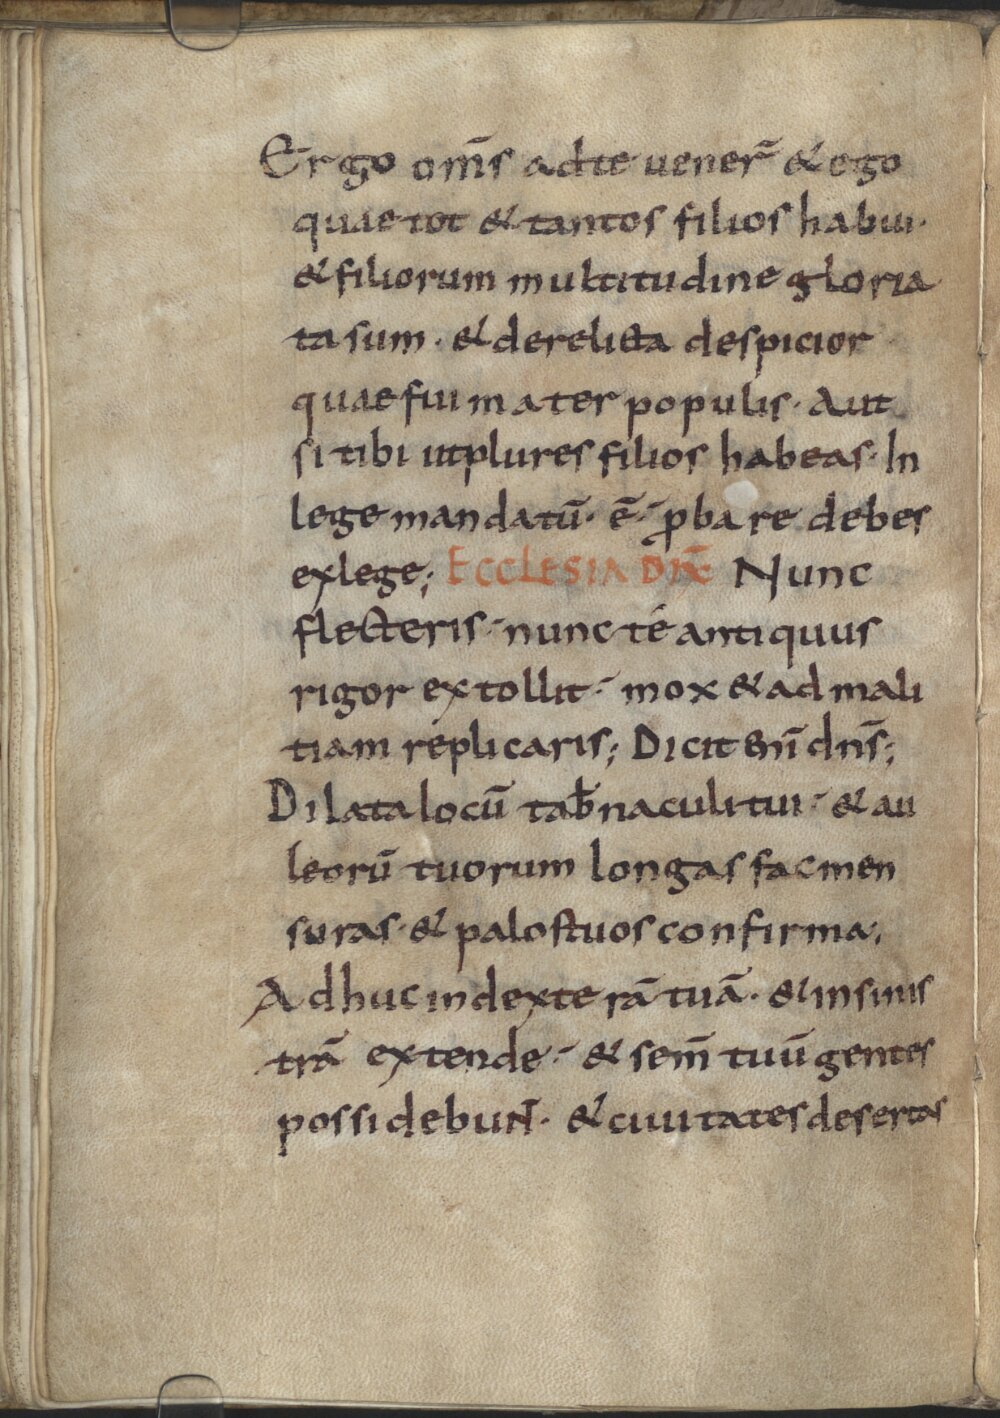 Ergo om̄s adte uener̄ & ego
quae tot & tantos filios habui·
& filiorum multitudine gloria
ta sum· & derelicta despicior
quae fui mater populis· Aut
si tibi ut plures filios habeas· In
lege mandatū· ē· ꝓbare debes
ex lege; ECCLESIA DIX̄ Nunc
flecteris· nunc té antiquus
rigor extollit· mox & ad mali
tiam replicaris; Dicit eni̅ dn̄s;
Dilata locū tab̄naculi tui· & au
leorū tuorum longas fac men
suras· & palos tuos confirma;
Adhuc in dexterā tuā· & in sinis
trā extende· & sem̄ tuū gentes
possidebunt· & ciuitates desertas